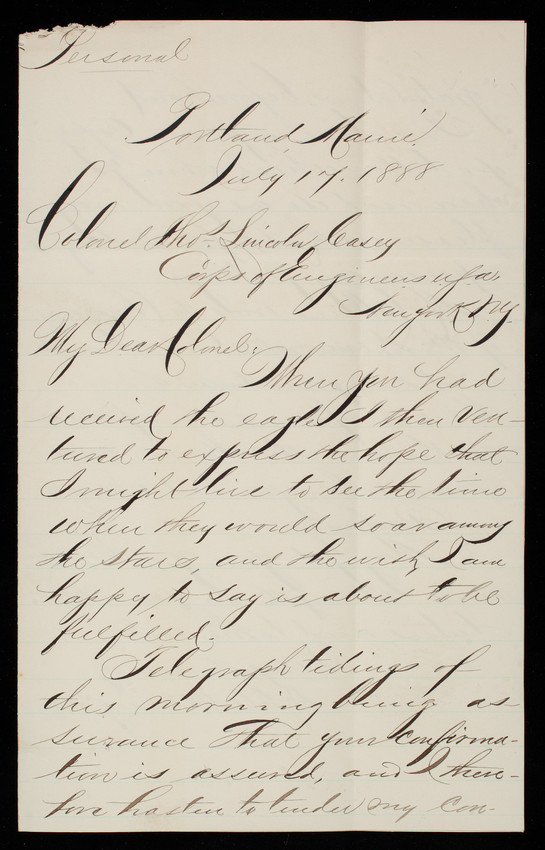 Personal
Portland, Maine.
July 17. 1888
Colonel Thos. Lincoln Casey
Corps of Engineers U.S.A.
New York N.Y.
My Dear Colonel:
When you had
received the eagle I then ven-
tured to express the hope that
I might live to see the time
when they would soar among
the stars, and the wish, I am
happy to say is about to be
fulfilled.
Telegraph tidings of
this morning bring as
surance that your confirma-
tion is assured, and I there-
fore hasten to tender my con-